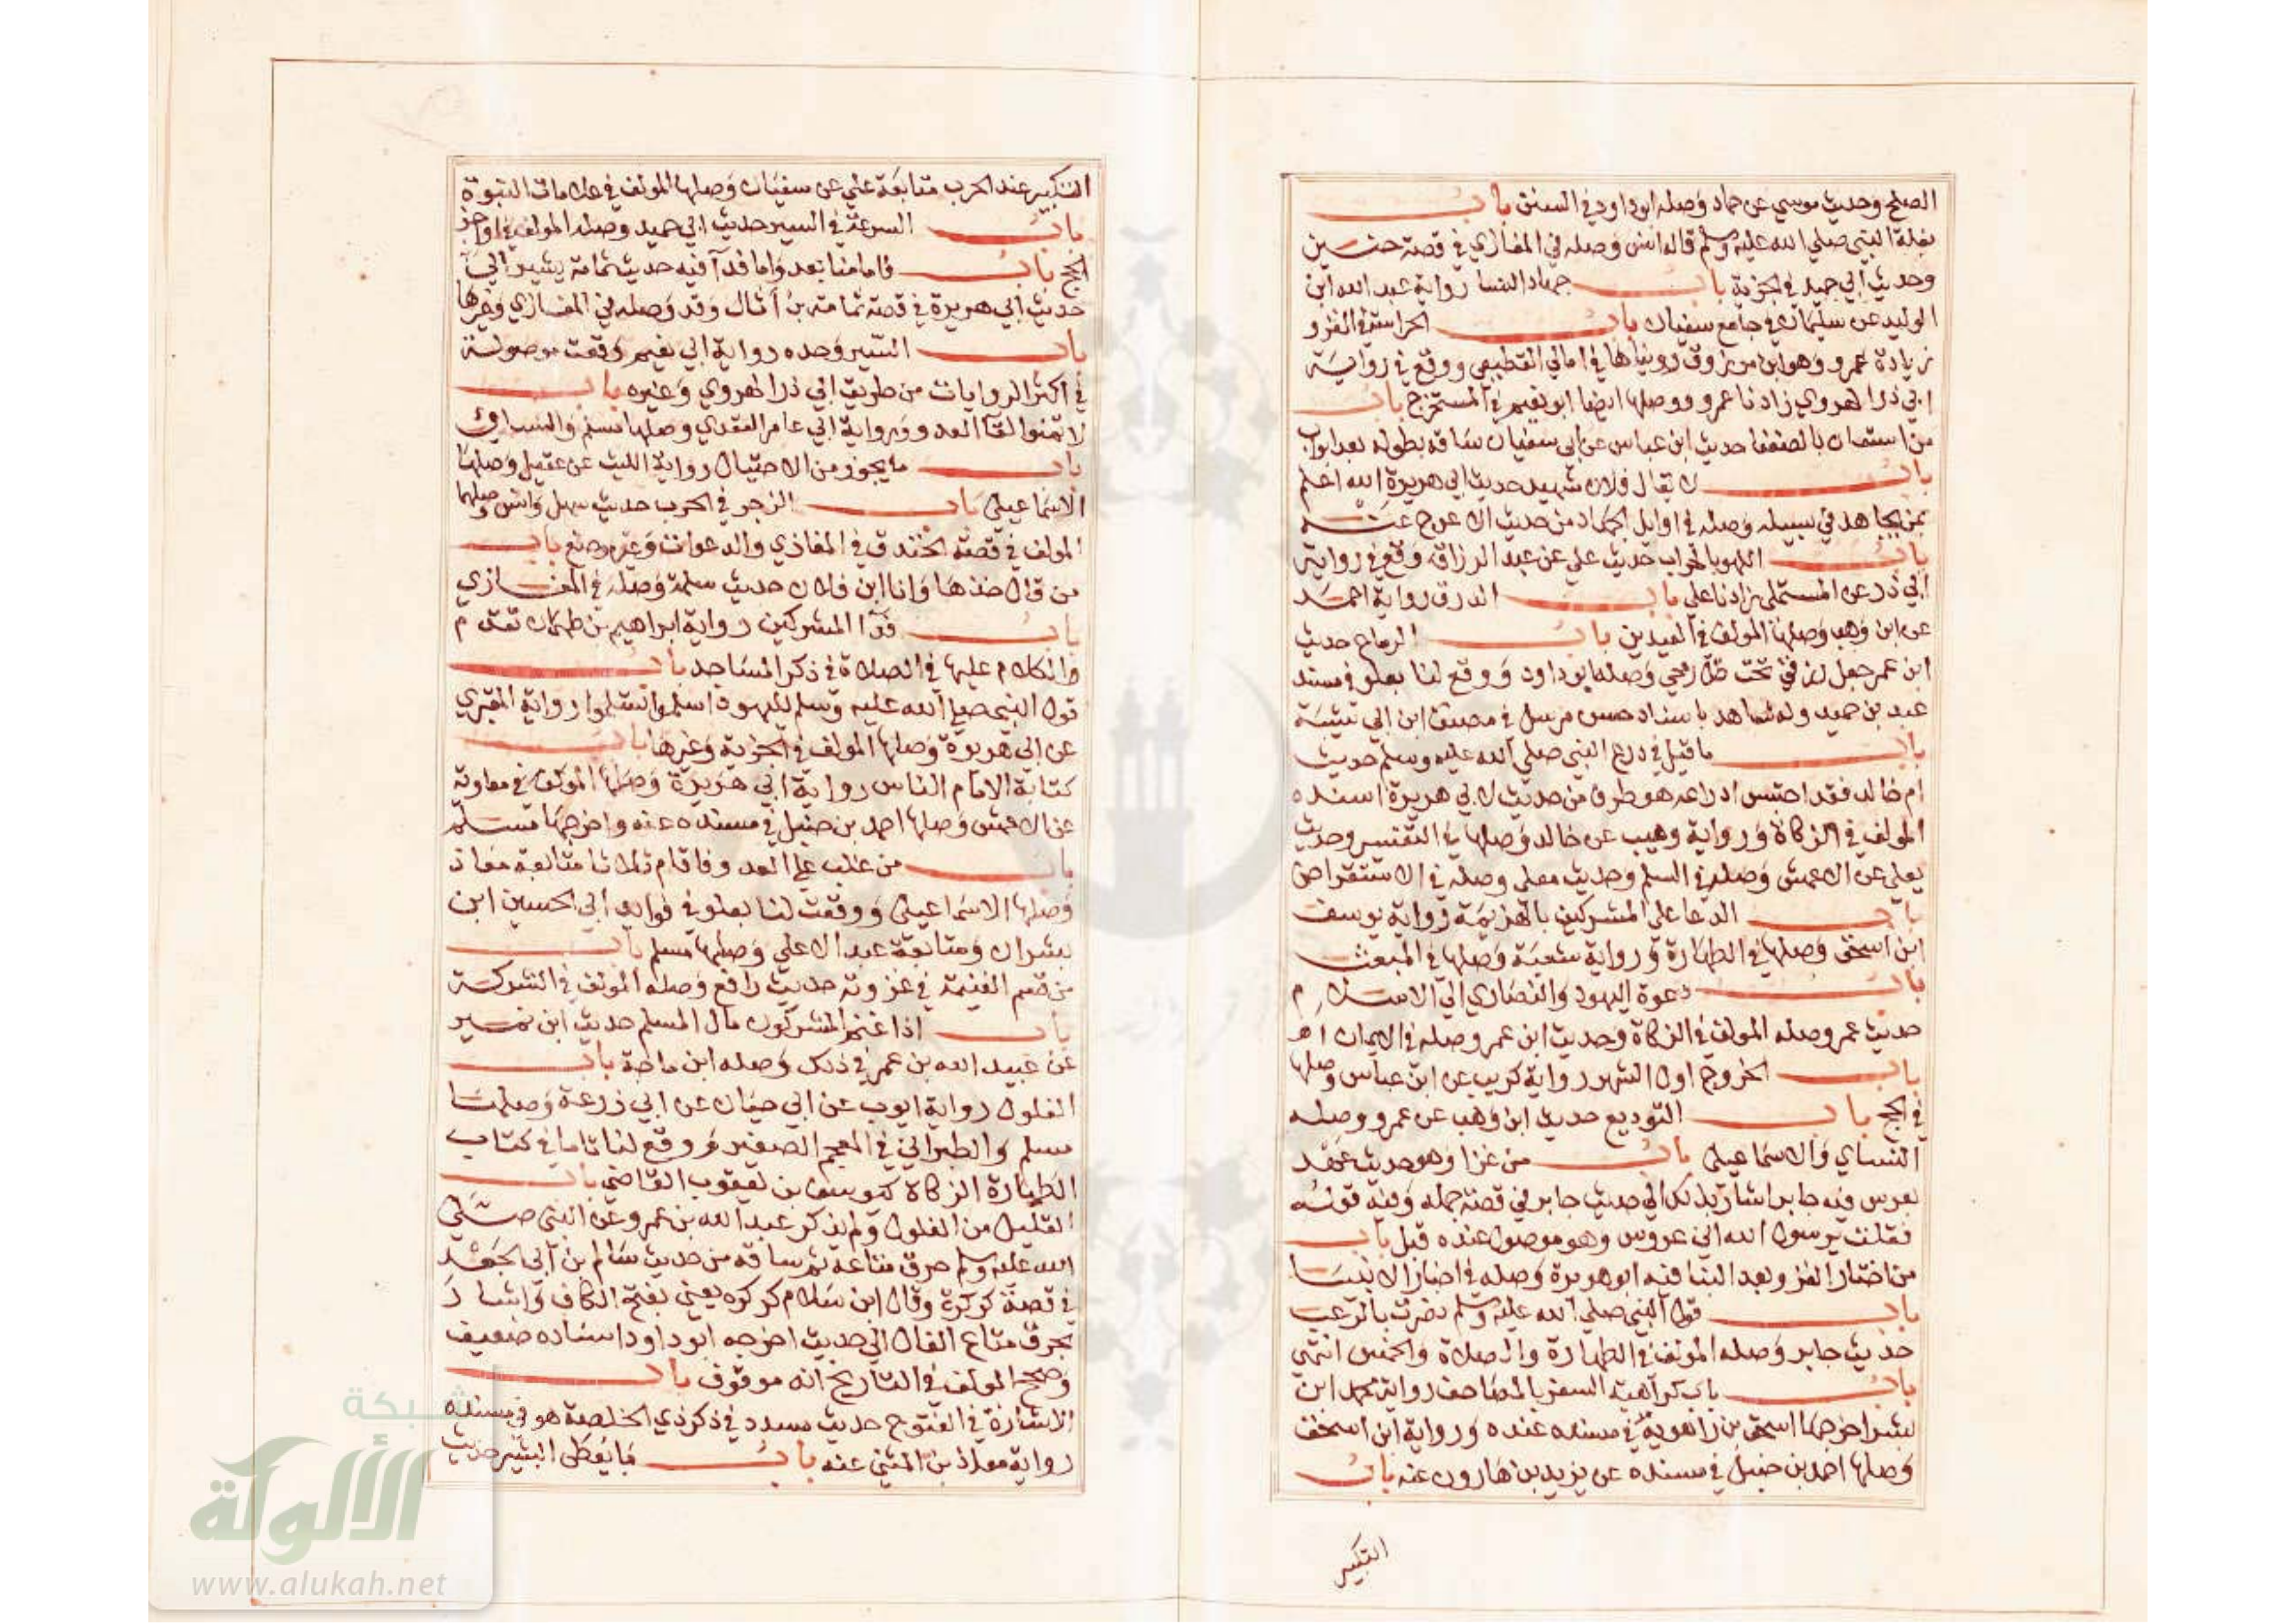 الصلح وحديث موسى عن حماد وصله ابو داود في السنن باب
بغلة النبي صلي الله عليه وسلم قاله انس وصله في المغازي في قصة حنين
وحديث ابي حميد في الجزية باب جهاد النسا رواية عبد الله ابن
الوليد عن سليمان في جامع سفيان باب الحراسة في الغزو
زيادة عمرو وهو ابن مرزوق رويناها في امالي القطيعي ووقع في رواية
ابي ذر الهروي زادنا عمرو ووصلها ايضا ابو نعيم في المستخرج باب
من استعان بالضعفا حديث ابن عباس عن ابي سفيان ساقه بطوله بعد ابواب
باب لا يقال فلان شهيد حديث ابي هريرة الله اعلم
بمن يجاهد في سبيله وصله في اوايل الجهاد من حديث الاعرج عنه
باب اللهو بالحراب حديث علي عن عبد الرزاق وقع في رواية
ابي ذر عن المستملي زادنا علي باب الدرق رواية احمد
عن ابن وهب وصلها المولف في العيدين باب الرماح حديث
ابن عمر جعل رزقي تحت ظل رمحي وصله ابو داود ووقع لنا بعلو في مسند
عبد بن حميد وله شاهد باسناد حسن مرسل في مصنف ابن ابي شيبة
باب ما قيل في درع النبي صلي الله عليه وسلم حديث
ام خالد فقد احتبس ادراعه هو طرف من حديث لابي هريرة اسنده
المولف في الزكاة ورواية وهيب عن خالد وصلها في التفسير وحديث
يعلي عن الاعمش وصله في السلم وحديث معلي وصله في الاستقراض
باب الدعا علي المشركين بالهزيمة رواية يوسف
ابن اسحق وصلها في الطهارة ورواية شعبة وصلها في المبعث
باب دعوة اليهود والنصاري الي الاسلام
حديث عمر وصله المولف في الزكاة وحديث ابن عمر وصله في الايمان اهـ
باب الخروج اول الشهر رواية كريب عن ابن عباس وصلها
في الحج باب التوديع حديث ابن وهب عن عمرو وصله
النساي والاسماعيلي باب من غزا وهو حديث عهد
بعرس فيه جابر اشار بذلك الي حديث جابر في قصة جمله وفيه قوله
فقلت يرسول الله اني عروس وهو موصول عنده قبل باب
من اختار الغزو بعد البنا فيه ابو هريرة وصله في اخبار الانبيا
باب قول النبي صلي الله عليه وسلم نصرت بالرعب
حديث جابر وصله المولف في الطهارة والصلاة والخمس انتهي
باب باب كراهية السفر بالمصاحف رواية محمد ابن
بشر اخرجها اسحق بن راهوية في مسنده عنده ورواية ابن اسحق
وصلها احمد بن حنبل في مسنده عن يزيد بن هارون عنه باب
التكبير
التكبير عند الحرب متابعة علي عن سفيان وصلها المولف في علامات النبوة
باب السرعة في السير حديث ابي حميد وصله المولف في اواخر
الحج باب فاما منا بعد واما فدا فيه حديث ثمامة يشير الي
حديث ابي هريرة في قصة ثمامة بن اثال وقد وصله في المغازي وغيرها
باب السير وحده رواية ابي نعيم وقعت موصولة
في اكثر الروايات من طريق ابي ذر الهروي وغيره باب
لا تمنوا لقا العدو ورواية ابي عامر العقدي وصلها مسلم والنساي
باب ما يجوز من الاحتيال رواية الليث عن عقيل وصلها
الاسماعيلي باب الرجز في الحرب حديث سهل وانس وصلهما
المولف في قصة الخندق في المغازي والدعوات وغير موضع باب
من قال خذها وانا ابن فلان حديث سلمة وصله في المغازي
باب فدا المشركين رواية ابراهيم بن طهمان تقدم
والكلام عليها في الصلاة في ذكر المساجد باب
قول النبي صلي الله عليه وسلم لليهود اسلموا تسلموا رواية المقبري
عن ابي هريرة وصلها المولف في الجزية وغيرها باب
كتابة الامام الناس رواية ابي هريرة وصلها المولف في معاوية
عن الاعمش وصلها احمد بن حنبل في مسنده عنه واخرجها مسلم
باب من غلب علي العدو فاقام ثلاثا متابعة معاذ
وصلها الاسماعيلي ووقعت لنا بعلو في فوايد ابي الحسين ابن
بشران ومتابعة عبد الاعلي وصلها مسلم باب
من قسم الغنيمة في غزوته حديث رافع وصله المولف في الشركة
باب اذا غنم المشركون مال المسلم حديث ابن نمير
عن عبيد الله بن عمر في ذلك وصله ابن ماجة باب
الغلول رواية ايوب عن ابي حيان عن ابي زرعة وصلها
مسلم والطبراني في المعجم الصغير ووقع لنا تاما في كتاب
الطهارة الزكاة ليوسف بن يعقوب القاضي باب
القليل من الغلول ولم يذكر عبد الله بن عمرو عن النبي صلي
الله عليه وسلم حرق متاعه ثم ساقه من حديث سالم بن ابي الجعد
في قصة كركرة وقال ابن سلام كركره يعني بفتح الكاف واشار
بحرق متاع الغال الي حديث اخرجه ابو داود اسناده ضعيف
وصحح المولف في التاريخ انه موقوف باب
الاشارة في الفتوح حديث مسدد في ذكر ذي الخلصة هو في مسنده
رواية معاذ بن المثني عنه باب ما يعطي البشير حديث
شبكة
الألوكة
www.alukah.net